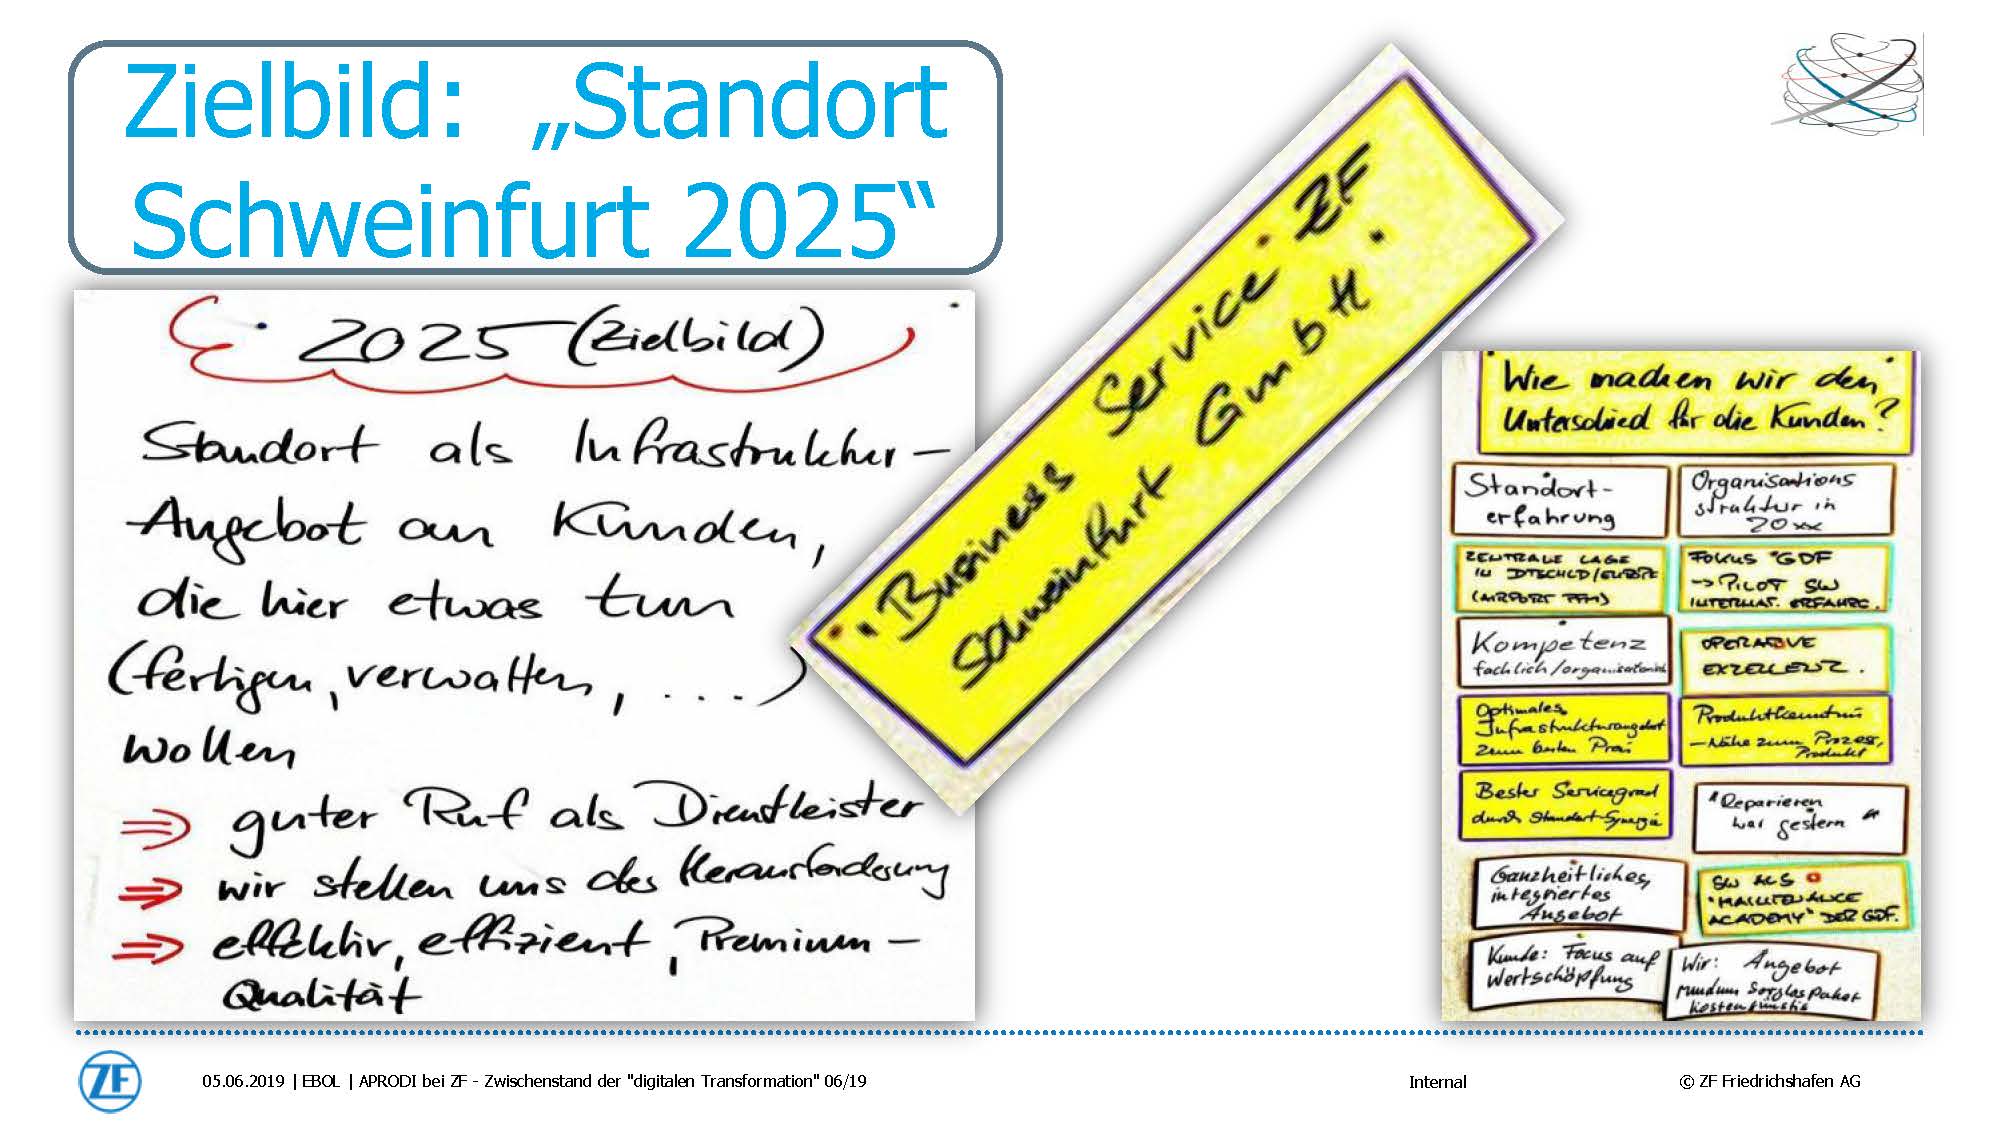 Zielbild: „Standort
Schweinfurt 2025“
2025 (Zielbild)
Standort als Infrastruktur-
Angebot an Kunden,
die hier etwas tun
(fertigen, verwalten, ...)
wollen
⇒ guter Ruf als Dienstleister
⇒ wir stellen uns der Herausforderung
⇒ effektiv, effizient, Premium-
Qualität
Business Service ZF
Schweinfurt GmbH
Wie machen wir den
Unterschied für die Kunden?
Standort-
erfahrung
Organisations
struktur in
20xx
ZENTRALE LAGE
IN DTSCHLD/EUROPE
(AIRPORT FFM)
FOKUS GDF
-> PILOT SW
INTERNAT. ERFAHRG.
Kompetenz
fachlich/organisatorisch
OPERATIVE
EXZELLENZ.
Optimales
Infrastrukturangebot
zum besten Preis
Produktkenntnis
- Nähe zum Prozess,
Produkt
Bester Servicegrad
durch Standort-Synergie
"Reparieren
war gestern"
Ganzheitliches,
integriertes
Angebot
SW ALS
"MAINTENANCE
ACADEMY" DER GDF.
Kunde: Focus auf
Wertschöpfung
Wir: Angebot
rundum Sorglos Paket
kostengünstig
ZF
05.06.2019 | EBOL | APRODI bei ZF - Zwischenstand der "digitalen Transformation" 06/19
Internal
© ZF Friedrichshafen AG